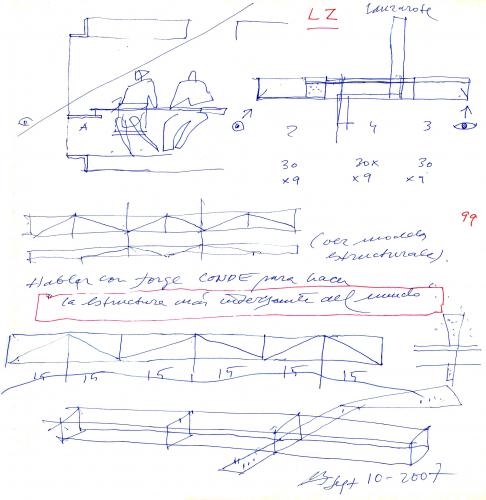 LZ Lanzarote
A
2 4 3
30 30x 30
x9 x9 x9
99
(ver modelos
estructurales).
Hablar con Jorge CONDE para hacer
"la estructura más interesante del mundo"
15 15 15 15 15 15
Sept 10-2007